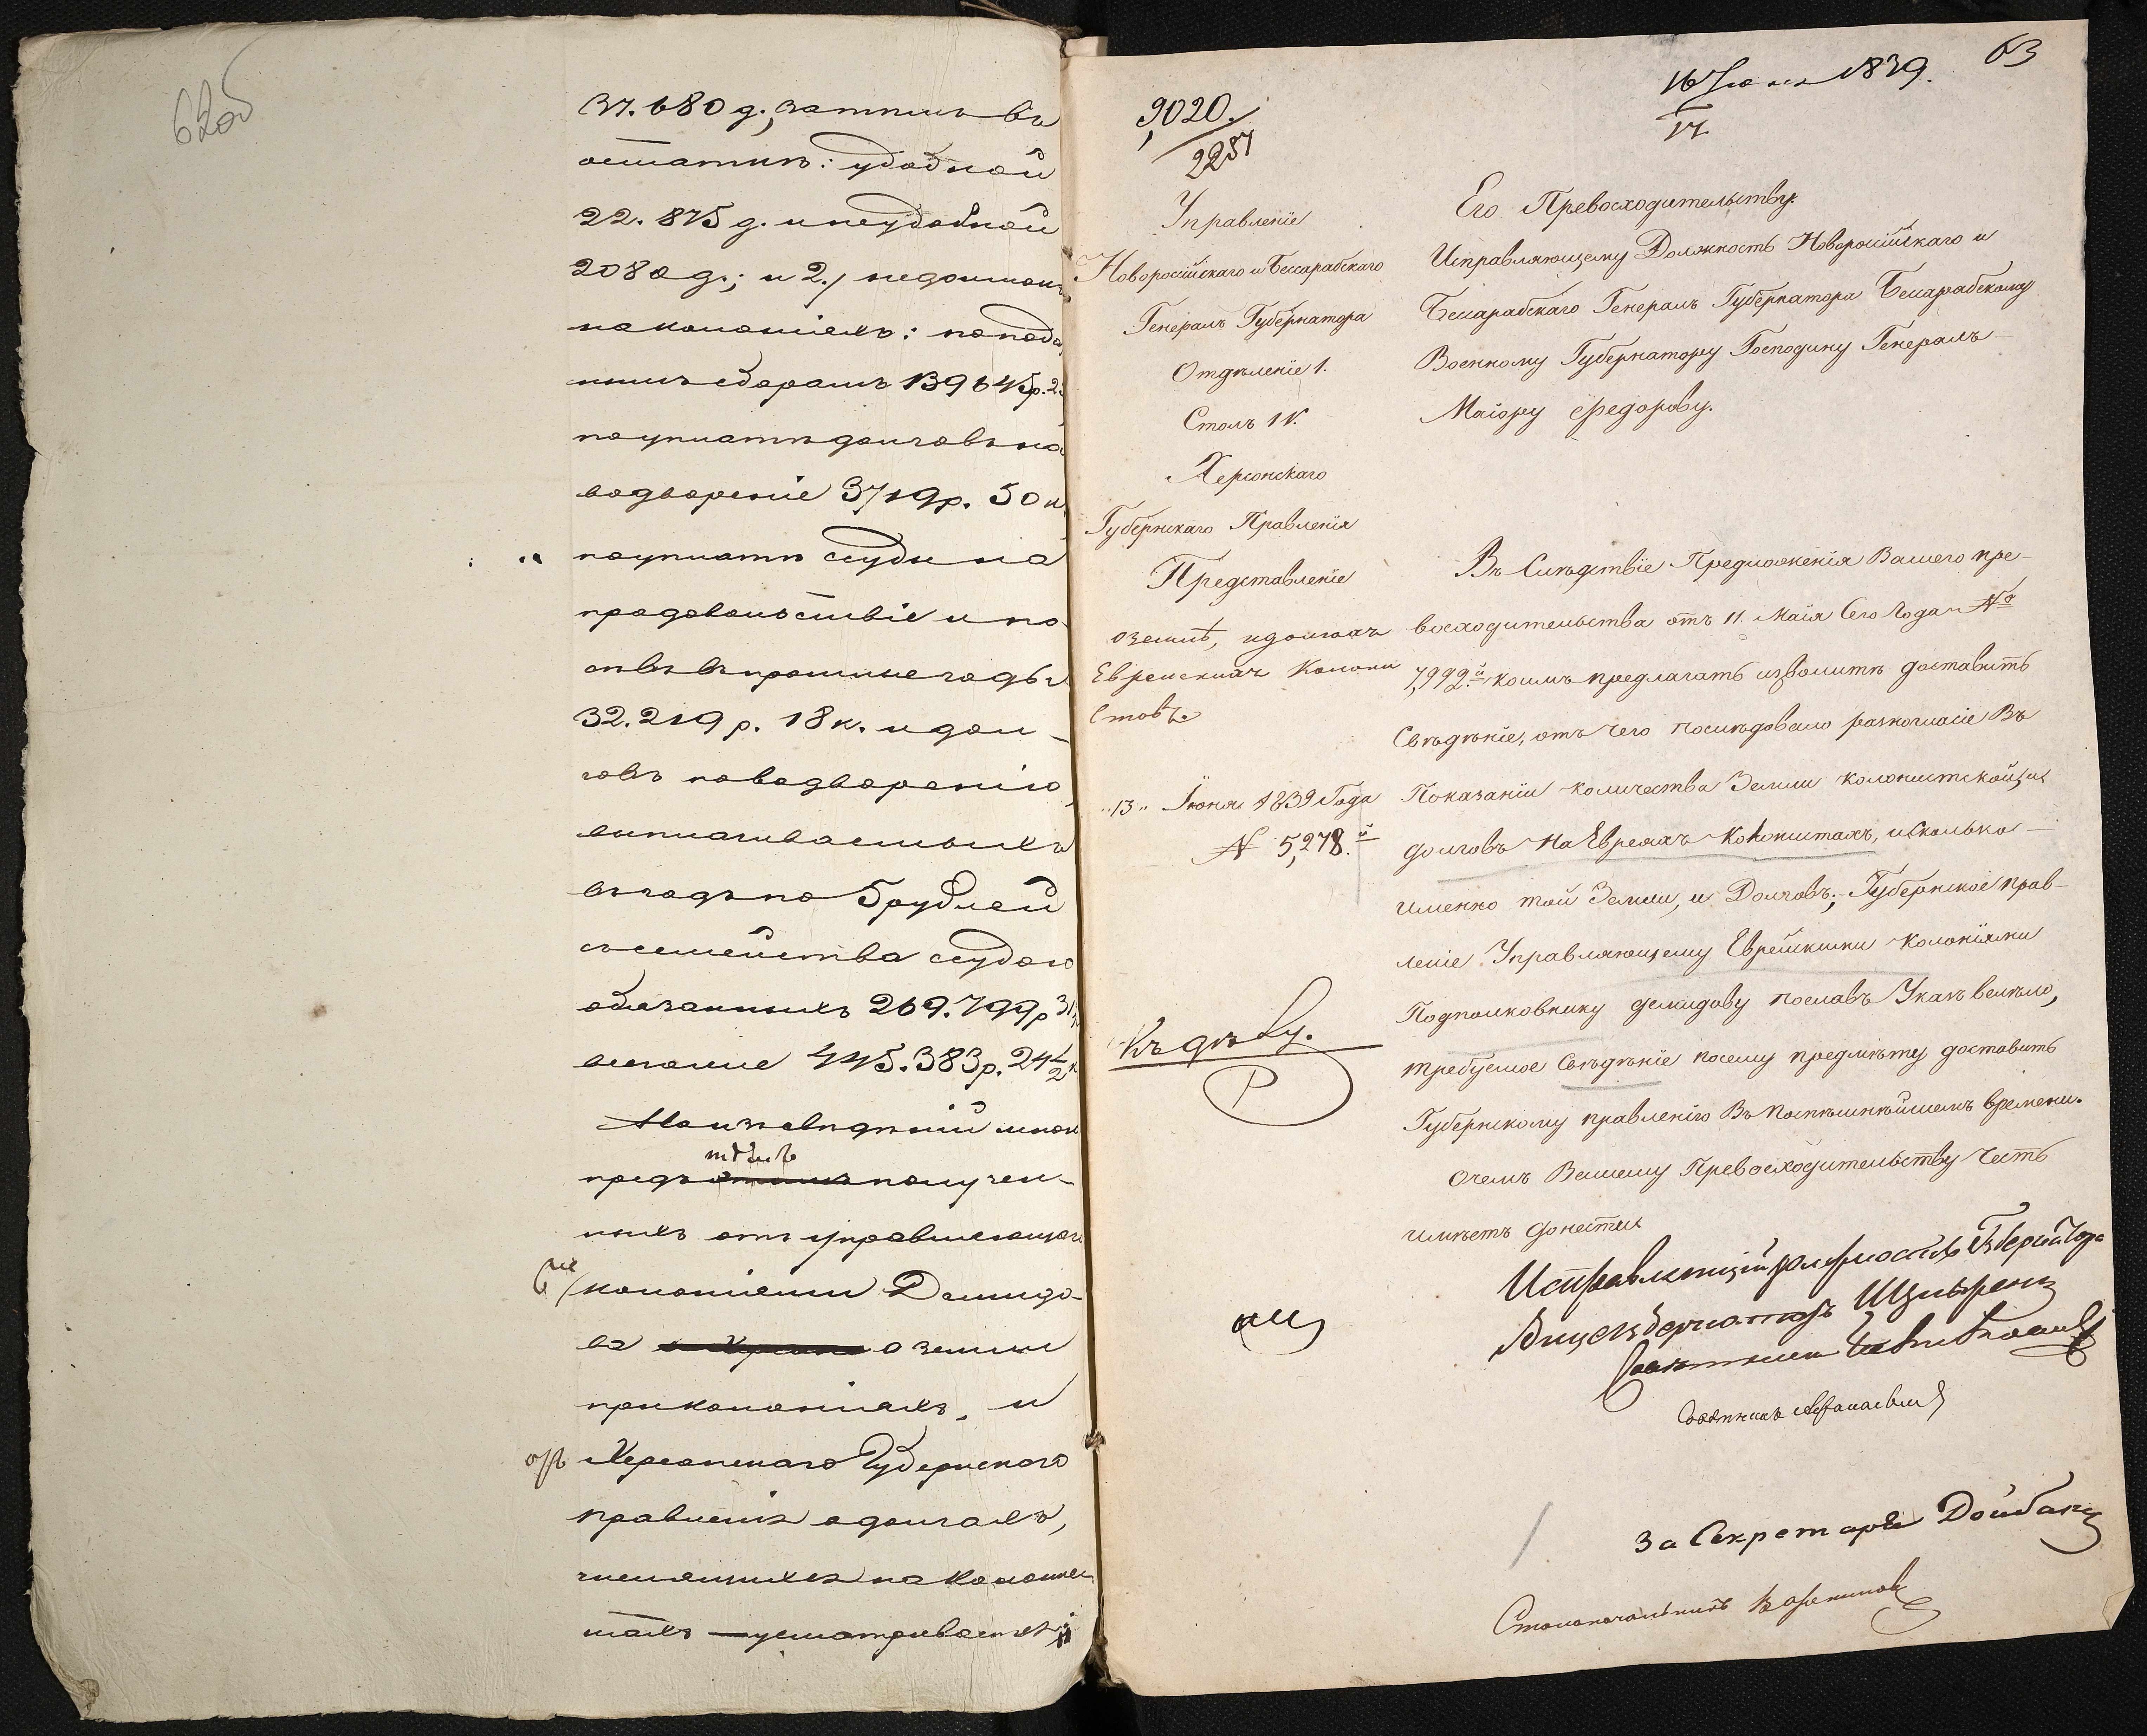 62об
37.680 д., затемъ въ
остатке: удобной
22.875 д. и неудобной
2080 д.; и 2./ недоимокъ
на колоніяхъ: по пода-
тнымъ сборамъ 139645 р. 2
по уплате долговъ на
водвореніе 3719 р. 50 к.
по уплате ссуды на
продовольствіе и по-
севъ въ прошлые годы
32.219 р. 18 к. и дол-
говъ по водворенію,
выплачиваемыхъ
въ годъ по 5 рублей
съ семейства ссудою
обязанныхъ 269.799 р 31
вообще 445.383 р. 24 1/2 к
Между сведеній
темъ
предъ получен-
ныхъ отъ управляющаго
колоніями Демидо-
ва о земле
при колоніяхъ, и
отъ Херсонскаго Губернскаго
правленія о долгахъ,
числящихся на колонис-
тахъ усматривается
63
16 Іюня 1839.
17
9020.
2257
Управленіе
Новороссійскаго и Бессарабскаго
Генералъ Губернатора
Отдѣленіе 1.
Столъ IV.
Херсонскаго
Губернскаго Правленія
Представленіе
о землѣ, и долгахъ
Еврейскихъ Колони
стовъ.
"13" Іюня 1839 Года
№ 5,278.й
Къ дѣлу.
Его Превосходительству
Исправляющему Должность Новороссійскаго и
Бессарабскаго Генералъ Губернатора Бессарабскому
Военному Губернатору Господину Генералъ-
Маіору Федорову.
Въ Слѣдствіе Предложенія Вашего пре-
восходительства отъ 11 Маія Сего Года № 
7,992.й коимъ предлагать изволите доставить
Свѣдѣніе, отъ чего послѣдовало разногласіе Въ
Показаніи количества Земли колонистской, и
долговъ на Евреяхъ Колонистахъ, и сколько
именно той Земли, и Долговъ; Губернское прав-
леніе Управляющему Еврейскими Колоніями
Подполковнику Демидову пославъ Указъ велѣло,
требуемое Свѣдѣніе по сему предмѣту доставить
Губернскому правленію Въ поспѣшнѣйшемъ времени.
О чемъ Вашему Превосходительству честь
имѣетъ донести
Исправляющій должность Губернатора
Вицегубернаторъ
Совѣтникъ
Совѣтникъ Афанасьевъ
За Секретаря
Столоначальникъ